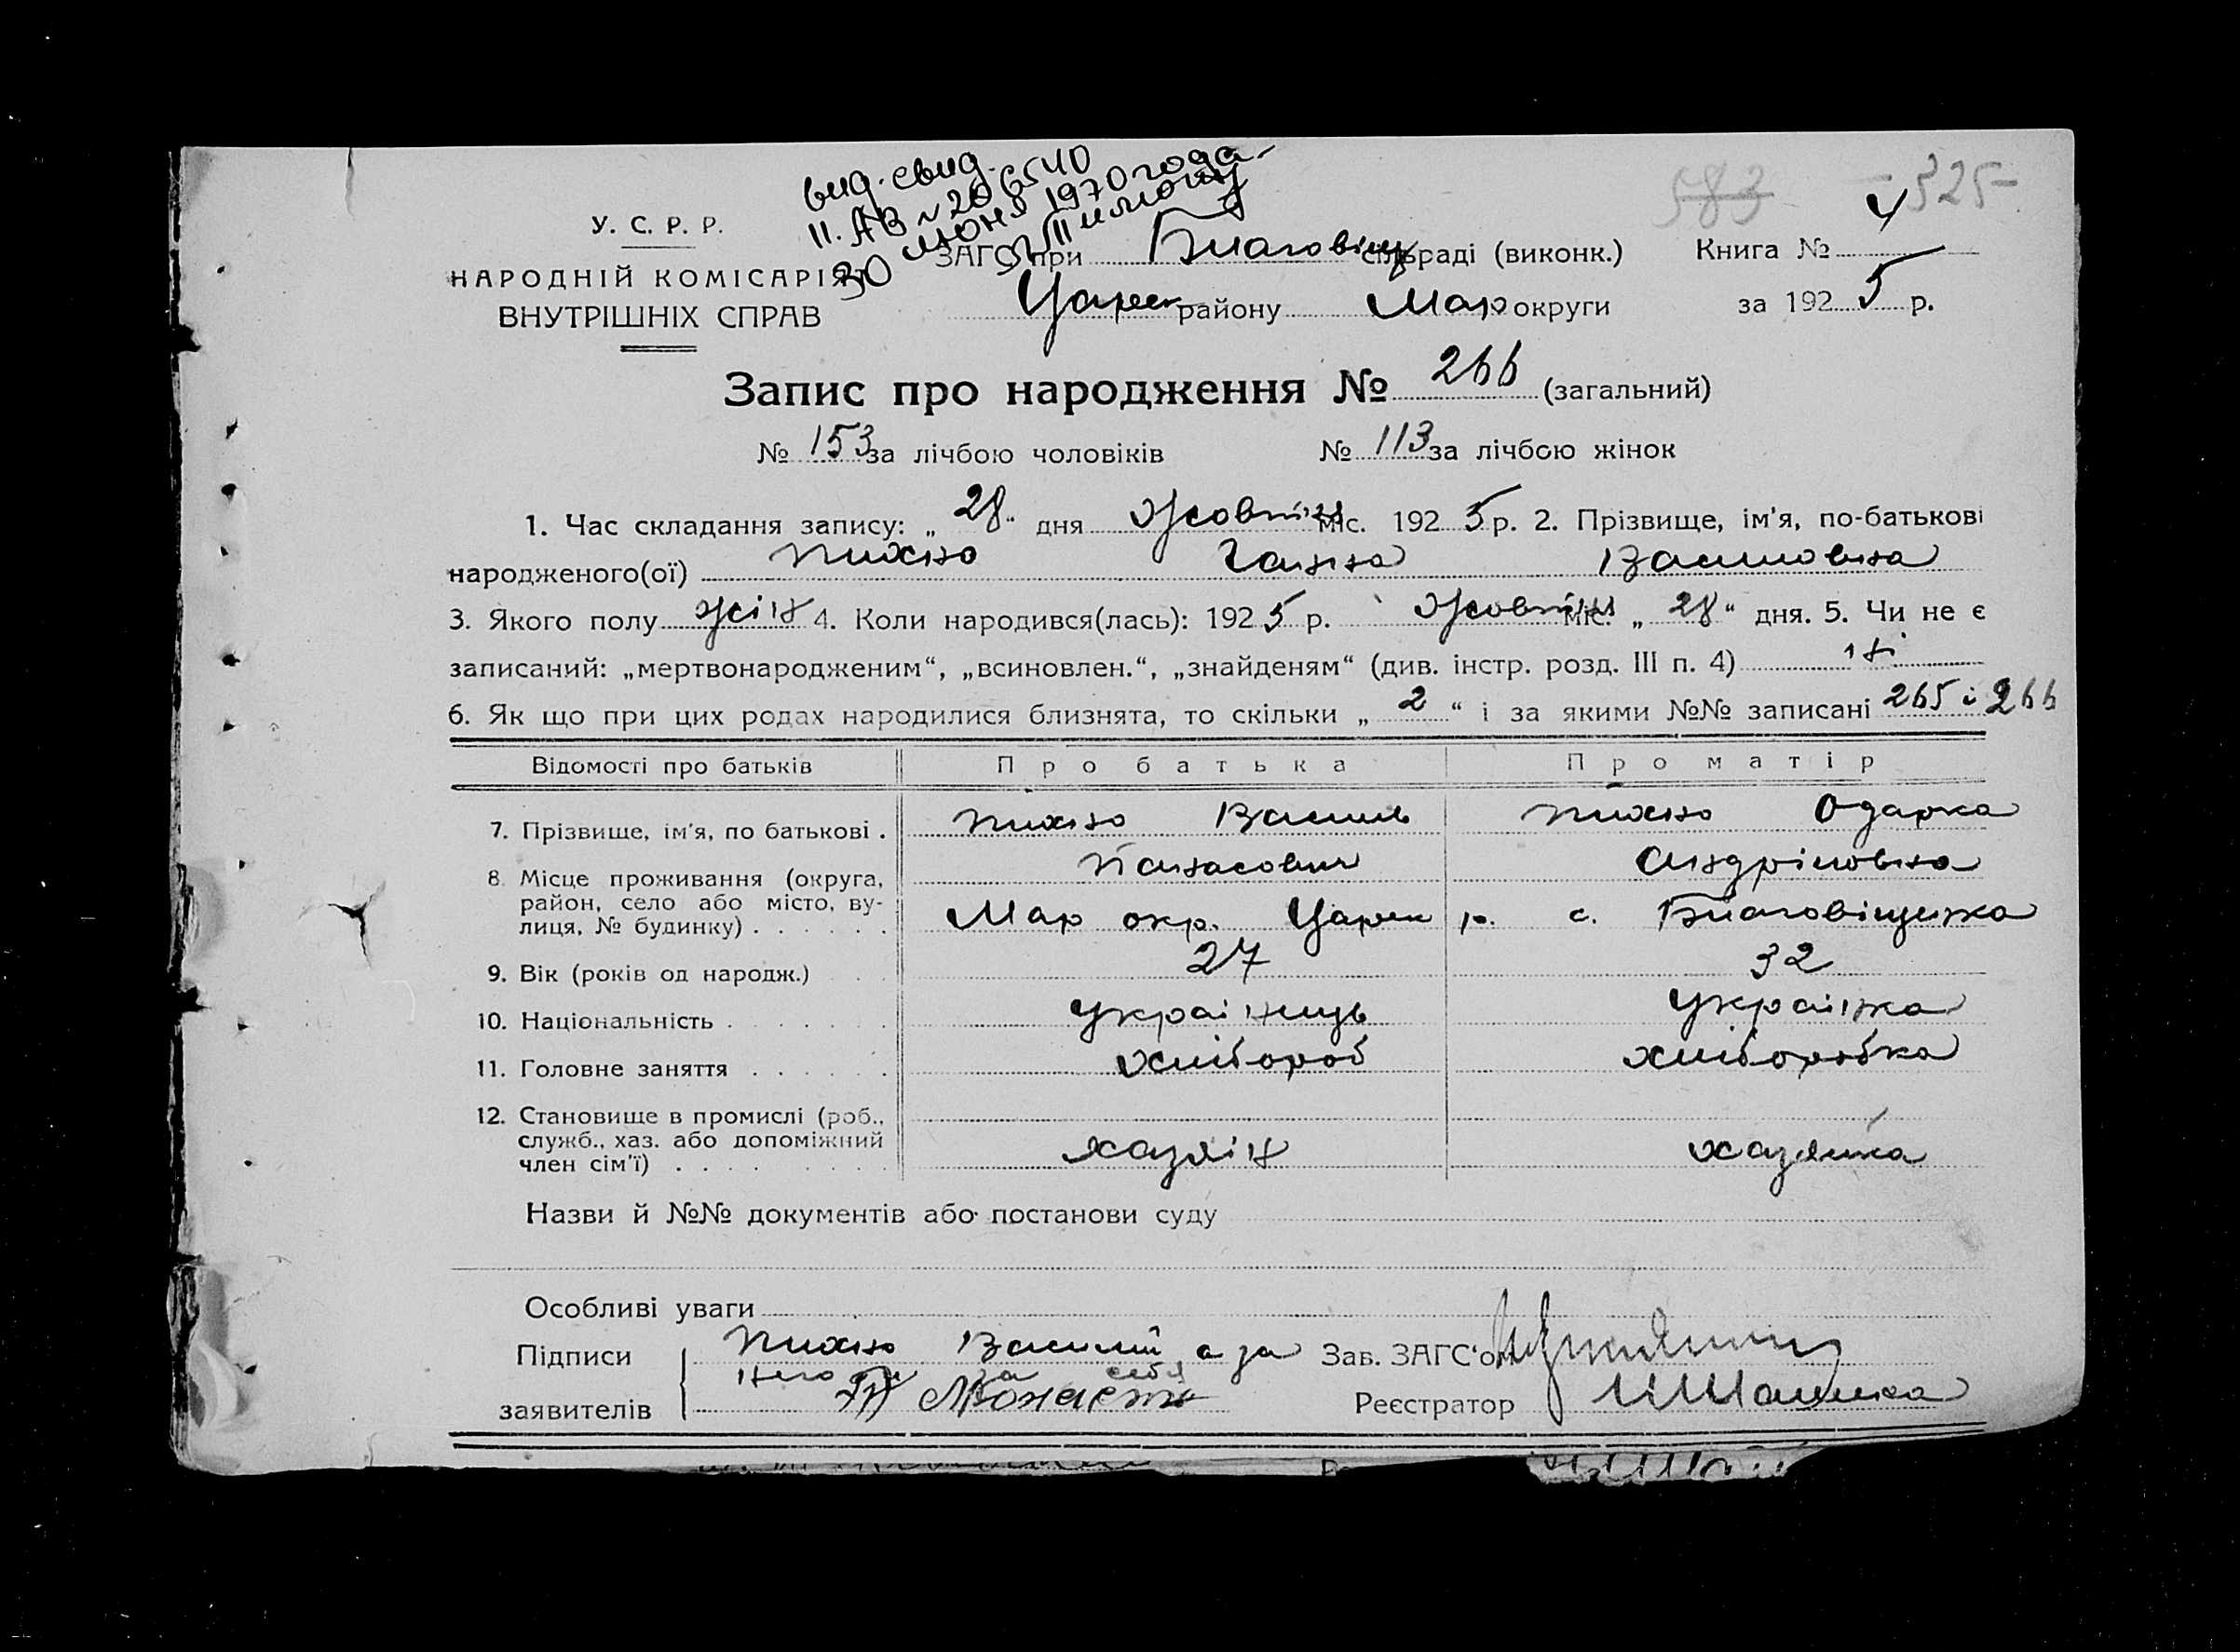 вид. свид.
II. АВ №
30 июня 1970 года
583 325
У. С. Р. Р.
НАРОДНІЙ КОМІСАРІЯТ
ВНУТРІШНІХ СПРАВ
ЗАГС при Благовіщ сільраді (виконк.) Книга № 4
Царек району Мар округи за 1925 р.
Запис про народження № 266 (загальний)
№ 153 за лічбою чоловіків № 113 за лічбою жінок
1. Час складання запису: „ 28 “ дня Жовтня міс. 1925 р. 2. Прізвище, ім'я, по-батькові
народженого(ої) Пихно Ганна Василовна
3. Якого полу жін 4. Коли народився(лась): 1925 р. Жовтня міс. „ 28 “ дня. 5. Чи не є
записаний: „мертвонародженим“, „всиновлен.“, „знайденям“ (див. інстр. розд. III п. 4) ні
6. Як що при цих родах народилися близнята, то скільки „ 2 “ і за якими №№ записані 265 і 266
Відомості про батьків Про батька Про матір
7. Прізвище, ім'я, по батькові . Пихно Василь Пихно Одарка
Панасович Андріловна
8. Місце проживання (округа,
район, село або місто, ву-
лиця, № будинку) . . . . . . Мар окр. Царек р. с. Благовіщенка
9. Вік (років од народж.) 27 32
10. Національність . . . . . . . Українець Українка
11. Головне заняття . . . . . . Хлібороб хліборобка
12. Становище в промислі (роб.,
служб., хаз. або допоміжний
член сім'ї) . . . . . . . . . хазяін хазяйка
Назви й №№ документів або постанови суду
Особливі уваги
Підписи Пихно Василий а за Зав. ЗАГС'ом
него и за себя
заявителів Реєстратор